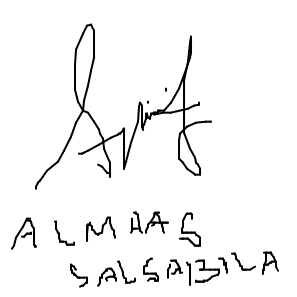 ALMHAS
SALSABILA